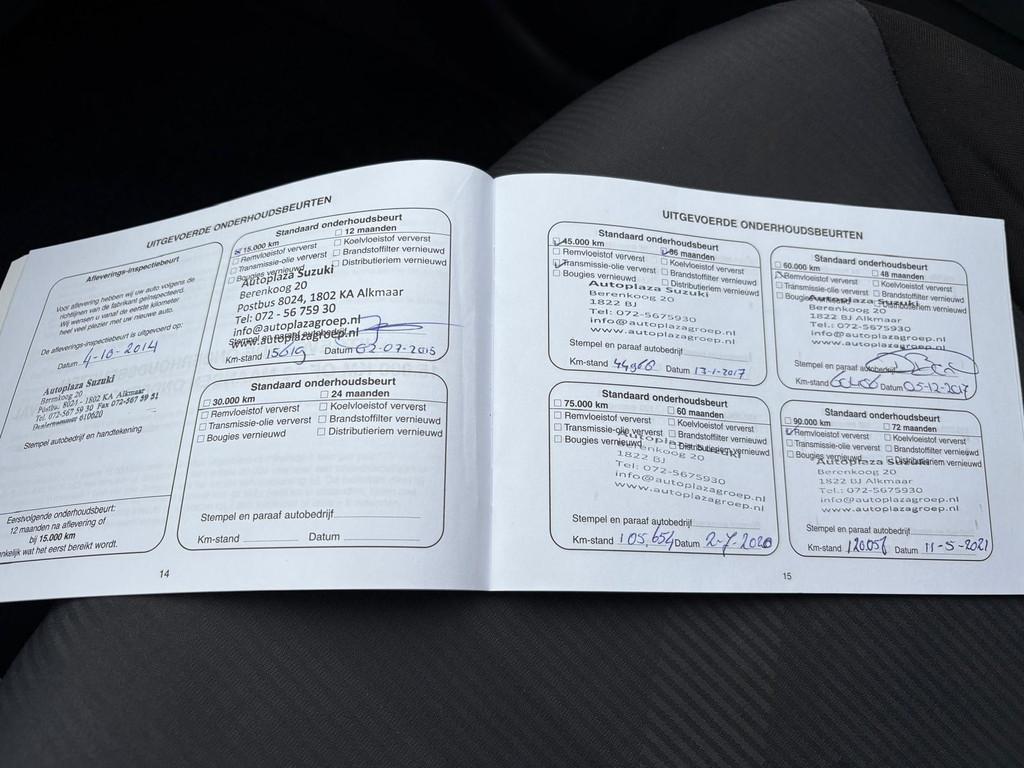 UITGEVOERDE ONDERHOUDSBEURTEN
Afleverings-inspectiebeurt
Voor aflevering hebben wij uw auto volgens de
richtlijnen van de fabrikant geïnspecteerd.
Wij wensen u vanaf de eerste kilometer
heel veel plezier met uw nieuwe auto.
De afleverings-inspectiebeurt is uitgevoerd op:
Datum 4-10-2014
Autoplaza Suzuki
Berenkoog 20
Postbus 8024 - 1802 KA Alkmaar
Tel. 072-567 59 30 Fax 072-567 59 51
Dealernummer 610620
Stempel autobedrijf en handtekening
Eerstvolgende onderhoudsbeurt:
12 maanden na aflevering of
bij 15.000 km
nkelijk wat het eerst bereikt wordt.
Standaard onderhoudsbeurt
15.000 km 12 maanden
Remvloeistof ververst Koelvloeistof ververst
Transmissie-olie ververst Brandstoffilter vernieuwd
Bougies vernieuwd Distributieriem vernieuwd
Autoplaza Suzuki
Berenkoog 20
Postbus 8024, 1802 KA Alkmaar
Tel: 072 - 56 759 30
info@autoplazagroep.nl
www.autoplazagroep.nl
Stempel en paraaf autobedrijf
Km-stand 15619 Datum 02-07-2015
Standaard onderhoudsbeurt
30.000 km 24 maanden
Remvloeistof ververst Koelvloeistof ververst
Transmissie-olie ververst Brandstoffilter vernieuwd
Bougies vernieuwd Distributieriem vernieuwd
Stempel en paraaf autobedrijf
Km-stand Datum
14
UITGEVOERDE ONDERHOUDSBEURTEN
Standaard onderhoudsbeurt
45.000 km 36 maanden
Remvloeistof ververst Koelvloeistof ververst
Transmissie-olie ververst Brandstoffilter vernieuwd
Bougies vernieuwd Distributieriem vernieuwd
Autoplaza Suzuki
Berenkoog 20
1822 BJ
Tel.: 072-5675930
info@autoplazagroep.nl
www.autoplazagroep.nl
Stempel en paraaf autobedrijf
Km-stand Datum 13-1-2017
Standaard onderhoudsbeurt
60.000 km 48 maanden
Remvloeistof ververst Koelvloeistof ververst
Transmissie-olie ververst Brandstoffilter vernieuwd
Bougies Distributieriem vernieuwd
Autoplaza Suzuki
Berenkoog 20
1822 BJ Alkmaar
Tel.: 072-5675930
info@autoplazagroep.nl
www.autoplazagroep.nl
Stempel en paraaf autobedrijf
Km-stand Datum 05-12-2017
Standaard onderhoudsbeurt
75.000 km 60 maanden
Remvloeistof ververst Koelvloeistof ververst
Transmissie-olie ververst Brandstoffilter vernieuwd
Bougies vernieuwd Distributieriem vernieuwd
Autoplaza Suzuki
Berenkoog 20
1822 BJ
Tel: 072-5675930
info@autoplazagroep.nl
www.autoplazagroep.nl
Stempel en paraaf autobedrijf
Km-stand 105,654 Datum 2-7-2020
Standaard onderhoudsbeurt
90.000 km 72 maanden
Remvloeistof ververst Koelvloeistof ververst
Transmissie-olie ververst Brandstoffilter vernieuwd
Bougies vernieuwd Distributieriem vernieuwd
Autoplaza Suzuki
Berenkoog 20
1822 BJ Alkmaar
Tel.: 072-5675930
info@autoplazagroep.nl
www.autoplazagroep.nl
Stempel en paraaf autobedrijf
Km-stand Datum 11-5-2021
15